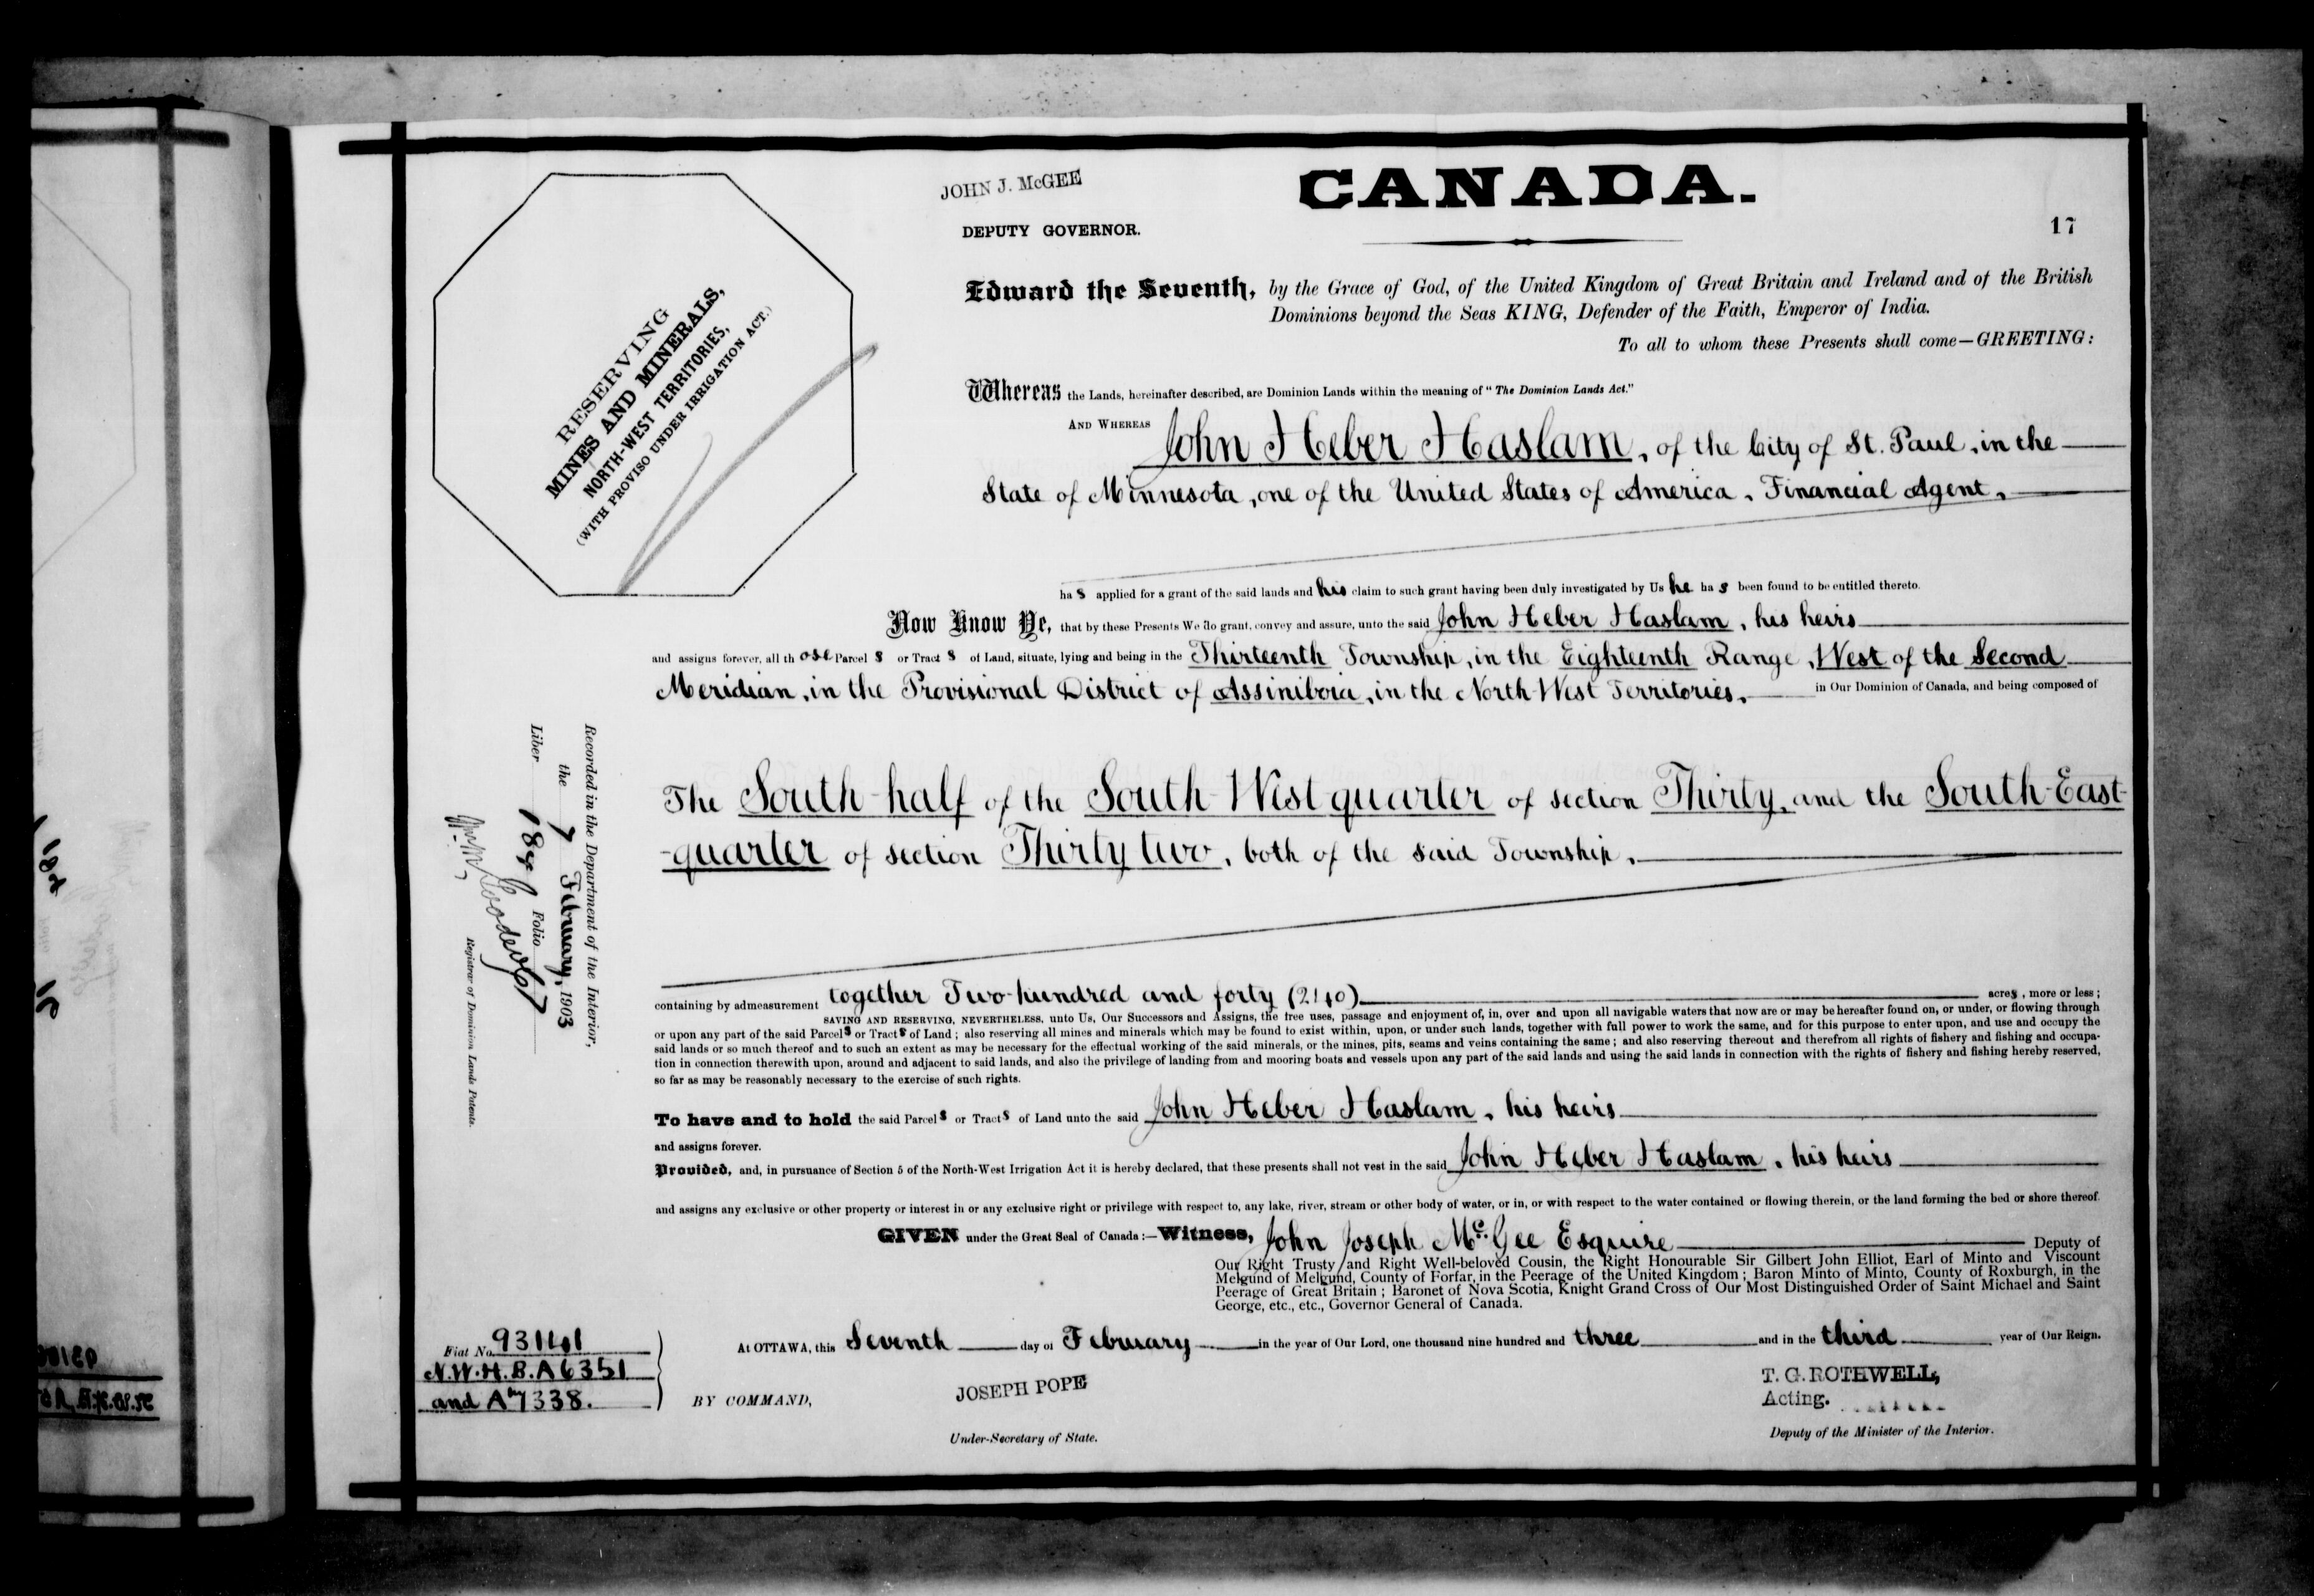 JOHN J. McGEE
CANADA.
DEPUTY GOVERNOR.
17
RESERVING
MINES AND MINERALS,
NORTH-WEST TERRITORIES,
(WITH PROVISO UNDER IRRIGATION ACT.)
Edward the Seventh, by the Grace of God, of the United Kingdom of Great Britain and Ireland and of the British
Dominions beyond the Seas KING, Defender of the Faith, Emperor of India.
To all to whom these Presents shall come—GREETING:
Whereas the Lands, hereinafter described, are Dominion Lands within the meaning of "The Dominion Lands Act."
AND WHEREAS John Heber Haslam, of the City of St. Paul, in the
State of Minnesota, one of the United States of America, Financial Agent,
has applied for a grant of the said lands and his claim to such grant having been duly investigated by Us he has been found to be entitled thereto.
Now Know Ye, that by these Presents We do grant, convey and assure, unto the said John Heber Haslam, his heirs
and assigns forever, all those Parcels or Tracts of Land, situate, lying and being in the Thirteenth Township, in the Eighteenth Range, West of the Second
Meridian, in the Provisional District of Assiniboia, in the North West Territories, in Our Dominion of Canada, and being composed of
The South half of the South West quarter of section Thirty, and the South-East-
-quarter of section Thirty two, both of the said Township,
containing by admeasurement together Two hundred and forty (240) acres, more or less;
SAVING AND RESERVING, NEVERTHELESS, unto Us, Our Successors and Assigns, the free uses, passage and enjoyment of, in, over and upon all navigable waters that now are or may be hereafter found on, or under, or flowing through
or upon any part of the said Parcels or Tracts of Land; also reserving all mines and minerals which may be found to exist within, upon, or under such lands, together with full power to work the same, and for this purpose to enter upon, and use and occupy the
said lands or so much thereof and to such an extent as may be necessary for the effectual working of the said minerals, or the mines, pits, seams and veins containing the same; and also reserving thereout and therefrom all rights of fishery and fishing and occupa-
tion in connection therewith upon, around and adjacent to said lands, and also the privilege of landing from and mooring boats and vessels upon any part of the said lands and using the said lands in connection with the rights of fishery and fishing hereby reserved,
so far as may be reasonably necessary to the exercise of such rights.
To have and to hold the said Parcels or Tracts of Land unto the said John Heber Haslam, his heirs
and assigns forever.
Provided, and, in pursuance of Section 5 of the North-West Irrigation Act it is hereby declared, that these presents shall not vest in the said John Heber Haslam, his heirs
and assigns any exclusive or other property or interest in or any exclusive right or privilege with respect to, any lake, river, stream or other body of water, or in, or with respect to the water contained or flowing therein, or the land forming the bed or shore thereof.
GIVEN under the Great Seal of Canada:—Witness, John Joseph McGee Esquire Deputy of
Our Right Trusty and Right Well-beloved Cousin, the Right Honourable Sir Gilbert John Elliot, Earl of Minto and Viscount
Melgund of Melgund, County of Forfar, in the Peerage of the United Kingdom; Baron Minto of Minto, County of Roxburgh, in the
Peerage of Great Britain; Baronet of Nova Scotia, Knight Grand Cross of Our Most Distinguished Order of Saint Michael and Saint
George, etc., etc., Governor General of Canada.
At OTTAWA, this Seventh day of February in the year of Our Lord, one thousand nine hundred and three and in the third year of Our Reign.
BY COMMAND,
JOSEPH POPE
Under-Secretary of State.
T. G. ROTHWELL,
Acting.
Deputy of the Minister of the Interior.
Fiat No. 93141
N.W.H.B.A 6351
and A 7338.
Recorded in the Department of the Interior,
the 7 February, 1903
Liber 184 Folio 17
Registrar of Dominion Lands Patents.